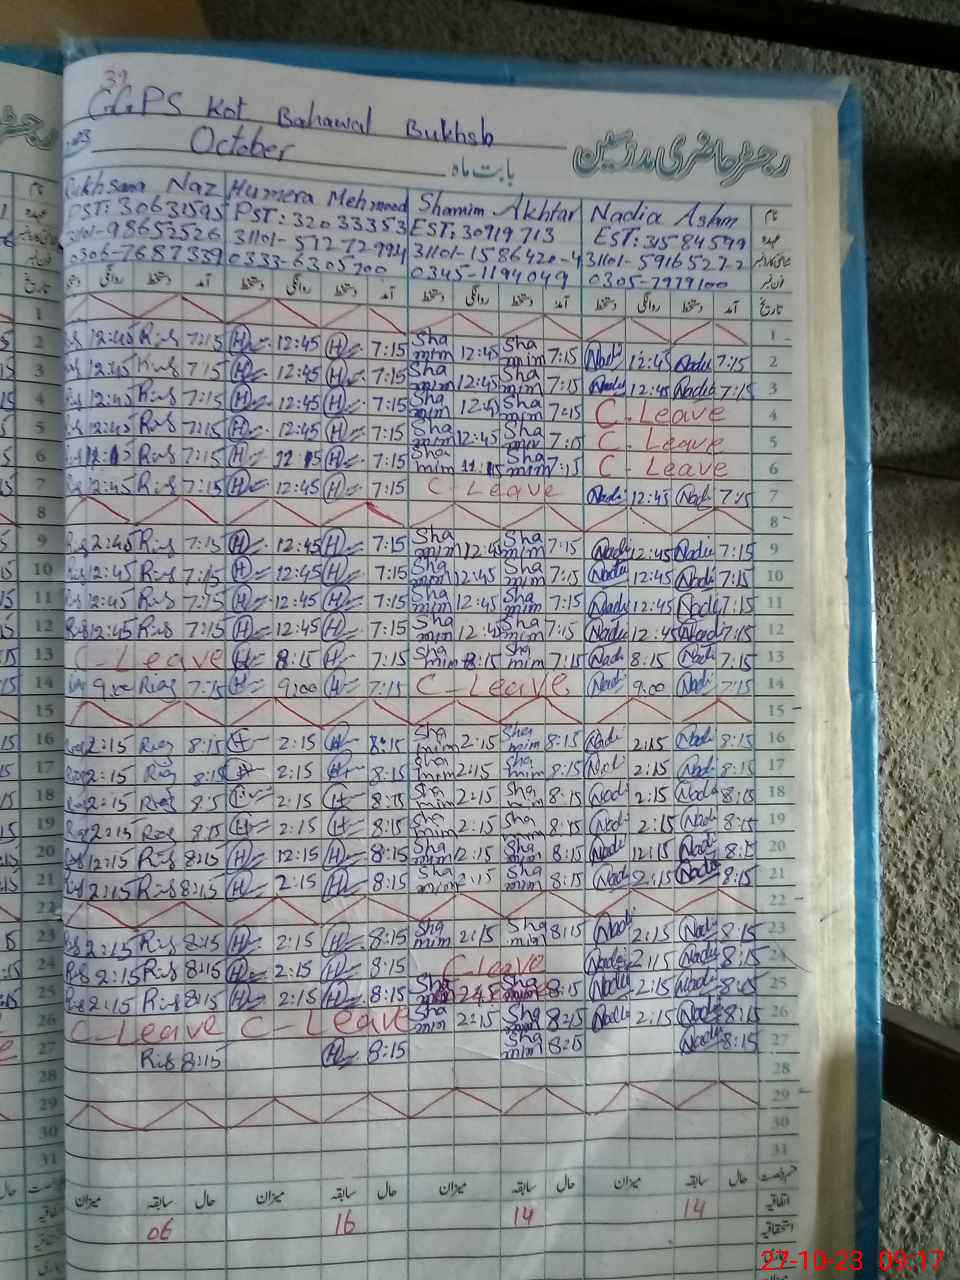 39
GGPS Kot Bahawal Bukhsh
رجسٹر حاضری مدرسین
October بابت ماہ
Rukhsana Naz Humera Mehmood Shamim Akhtar Nadia Aslam نام
PST: 30631595 PST: 32033353 EST: 30919713 EST: 31584599 عہدہ
31101-98652526 31101-51272994 31101-1586420-4 31101-5916527-2
0306-7687339 0333-6305700 0345-1194049 0305-7979100
دستخط روانگی دستخط آمد دستخط روانگی دستخط آمد دستخط روانگی دستخط آمد دستخط روانگی دستخط آمد تاریخ
1 1
2 12:45 Rias 7:15 H 12:45 H 7:15 Shamim 12:45 Shamim 7:15 Nadi 12:45 Nadia 7:15 2
3 12:45 Rias 7:15 H 12:45 H 7:15 Shamim 12:45 Shamim 7:15 Nadia 12:45 Nadia 7:15 3
4 12:45 Rias 7:15 H 12:45 H 7:15 Shamim 12:45 Shamim 7:15 C-Leave 4
5 12:45 Rias 7:15 H 12:45 H 7:15 Shamim 12:45 Shamim 7:15 C-Leave 5
6 11:15 Rias 7:15 H 11:15 H 7:15 Shamim 11:15 Shamim 7:15 C-Leave 6
7 12:45 Rias 7:15 H 12:45 H 7:15 C-Leave Nadi 12:45 Nadi 7:15 7
8 8
9 2:45 Rias 7:15 H 12:45 H 7:15 Shamim 12:45 Shamim 7:15 Nadia 12:45 Nadia 7:15 9
10 12:45 Rias 7:15 H 12:45 H 7:15 Shamim 12:45 Shamim 7:15 Nadi 12:45 Nadi 7:15 10
11 12:45 Rias 7:15 H 12:45 H 7:15 Shamim 12:45 Shamim 7:15 Nadia 12:45 Nadia 7:15 11
12 12:45 Rias 7:15 H 12:45 H 7:15 Shamim 12:45 Shamim 7:15 Nadia 12:45 Nadia 7:15 12
13 C-Leave H 8:15 H 7:15 Shamim 8:15 Shamim 7:15 Nadi 8:15 Nadi 7:15 13
14 9:00 Rias 7:15 H 9:00 H 7:15 C-Leave Nadi 9:00 Nadi 7:15 14
15 15
16 2:15 Rias 8:15 H 2:15 H 8:15 Shamim 2:15 Shamim 8:15 Nadi 2:15 Nadi 8:15 16
17 2:15 Rias 8:15 H 2:15 H 8:15 Shamim 2:15 Shamim 8:15 Nadi 2:15 Nadi 8:15 17
18 2:15 Rias 8:15 H 2:15 H 8:15 Shamim 2:15 Shamim 8:15 Nadi 2:15 Nadia 8:15 18
19 2:15 Rias 8:15 H 2:15 H 8:15 Shamim 2:15 Sha 8:15 Nadi 2:15 Nadi 8:15 19
20 12:15 Rias 8:15 H 12:15 H 8:15 Shamim 2:15 Shamim 8:15 Nadi 12:15 Nadi 8:15 20
21 2:15 Rias 8:15 H 2:15 H 8:15 Shamim 2:15 Shamim 8:15 Nadi 2:15 Nadia 8:15 21
22 22
23 2:15 Rias 8:15 H 2:15 H 8:15 Shamim 2:15 Shamim 8:15 Nadi 2:15 Nadi 8:15 23
24 2:15 Rias 8:15 H 2:15 H 8:15 C-Leave Nadi 2:15 Nadi 8:15 24
25 2:15 Rias 8:15 H 2:15 H 8:15 Shamim Shamim 8:15 Nadia 2:15 Nadia 8:15 25
26 C-Leave C-Leave Shamim 2:15 Shamim 8:15 Nadia 2:15 Nadia 8:15 26
27 Rias 8:15 H 8:15 Shamim 8:15 Nadia 8:15 27
28 28
29 29
30 30
31 31
میزان سابقہ حال میزان سابقہ حال میزان سابقہ حال میزان سابقہ حال
06 16 14 14 اتفاقیہ
استحقاقیہ
27-10-23 09:17